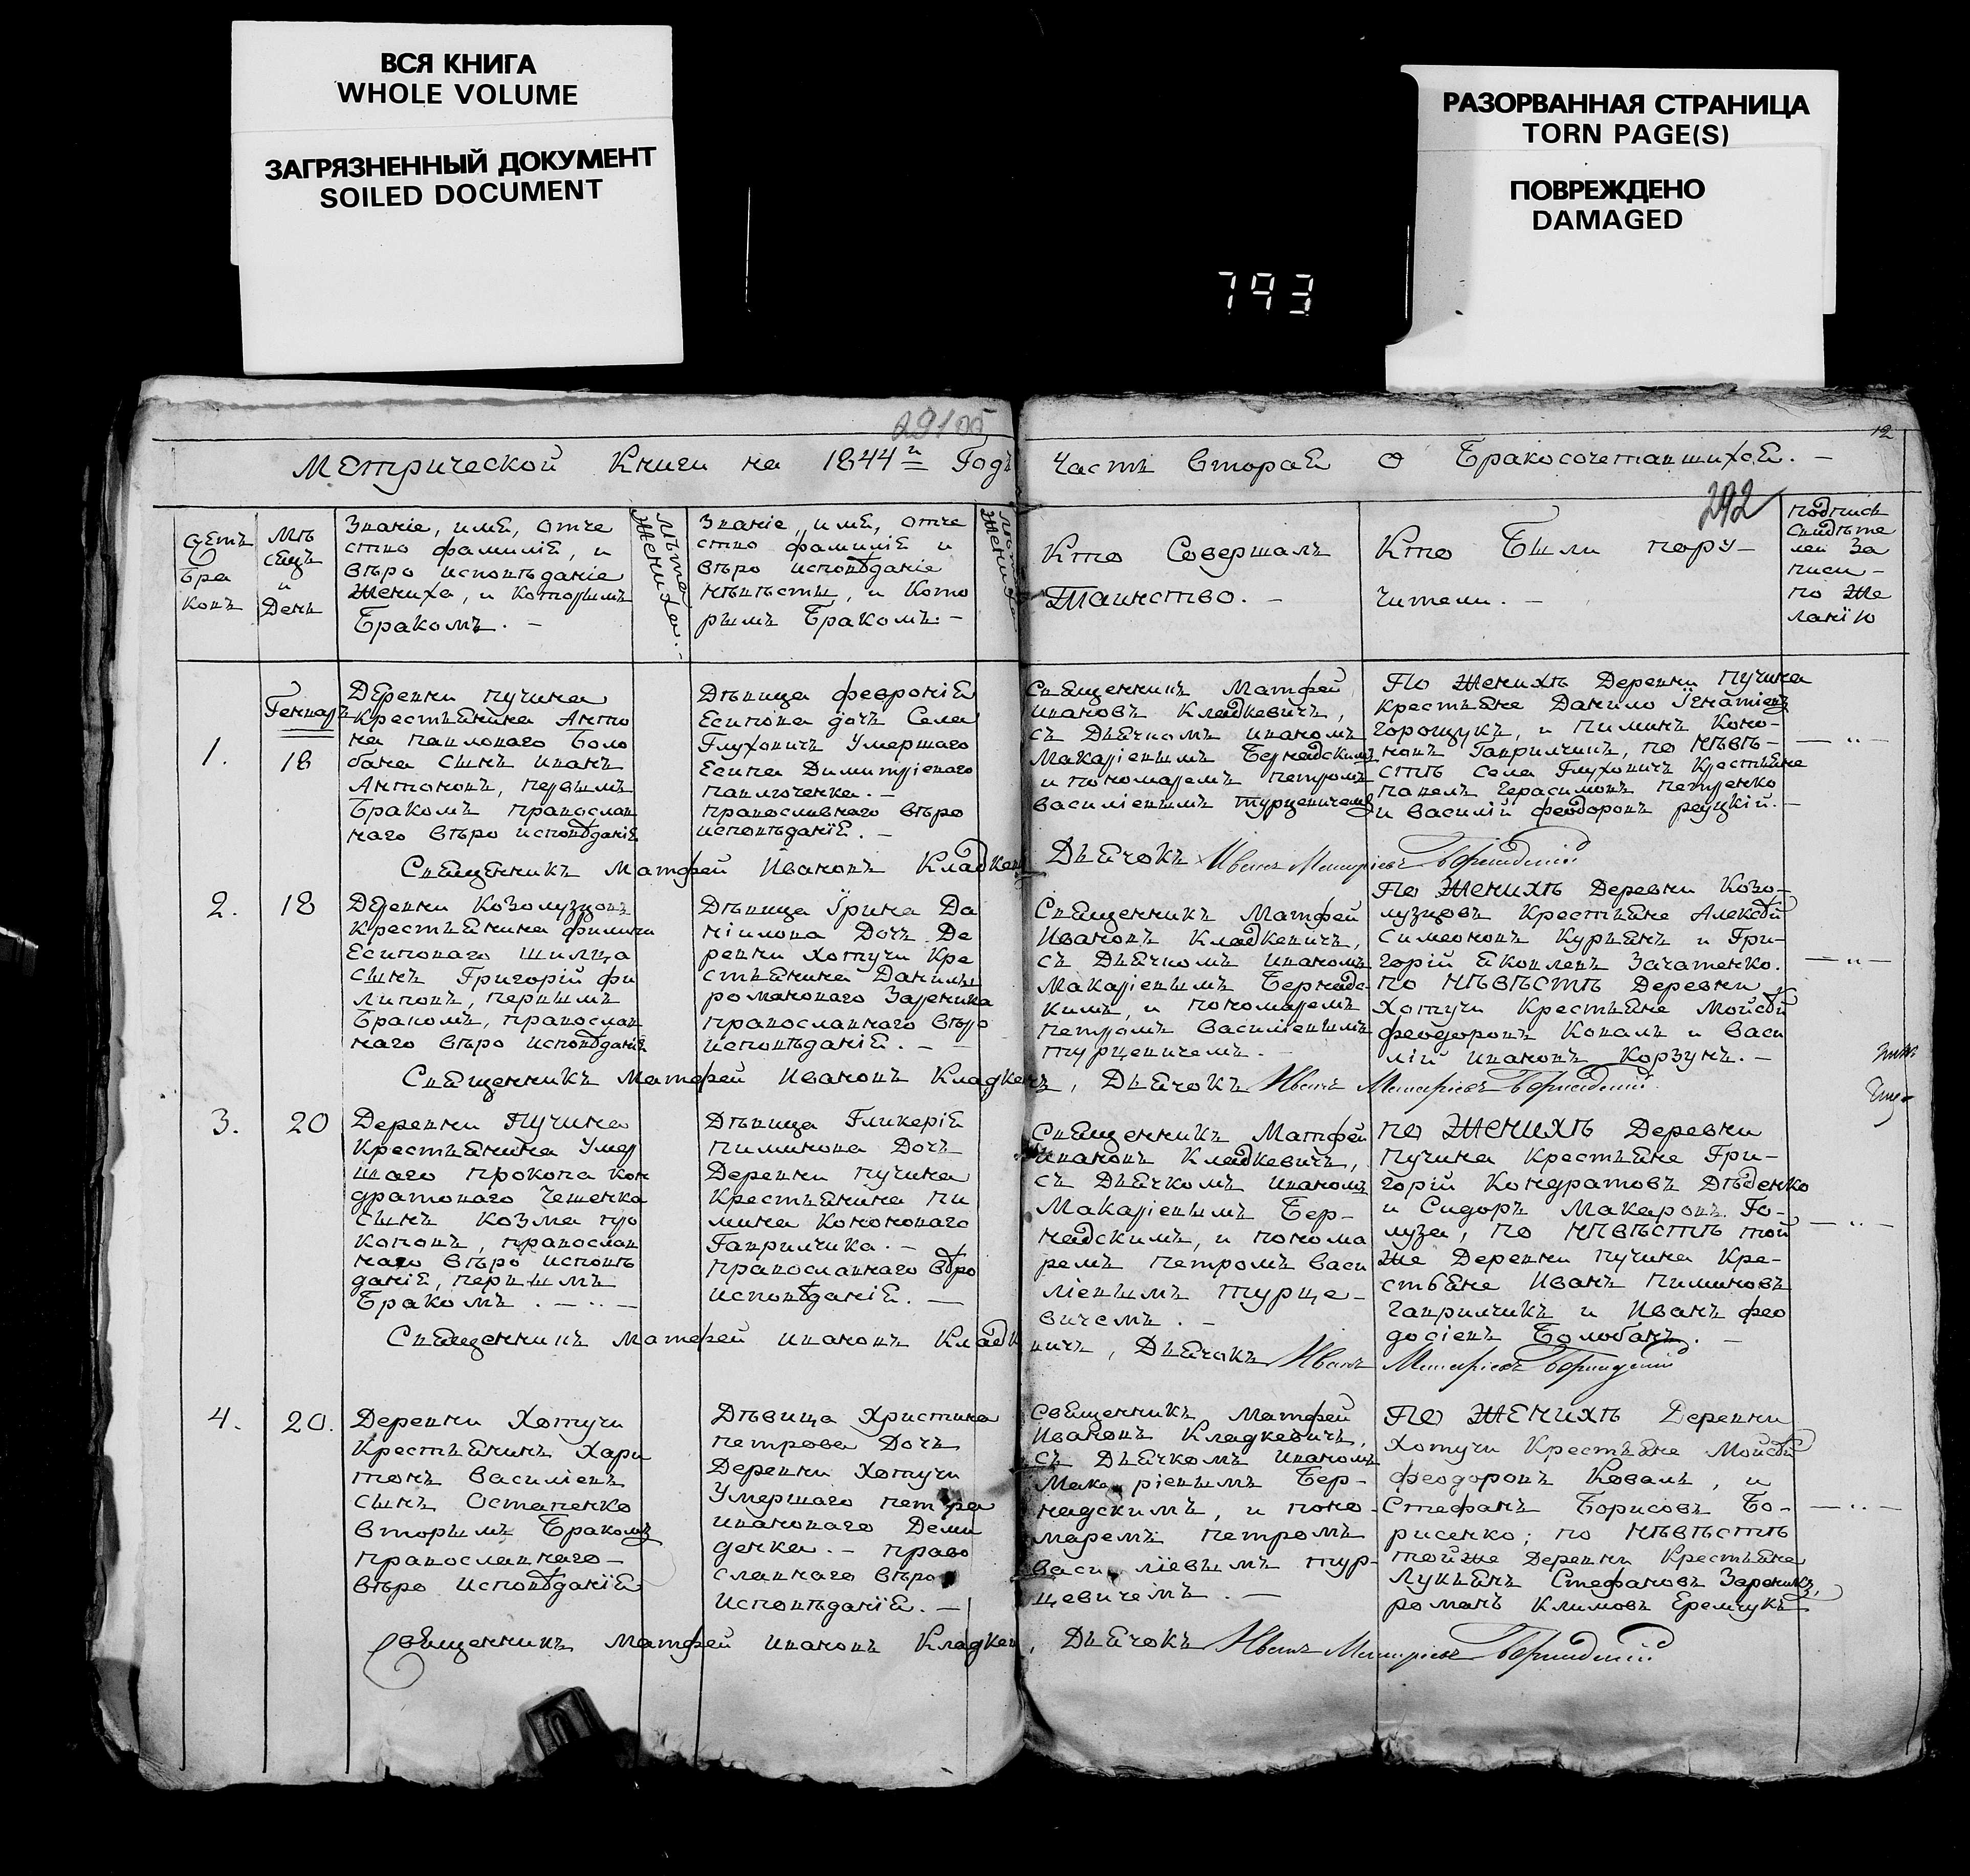 ВСЯ КНИГА
WHOLE VOLUME
ЗАГРЯЗНЕННЫЙ ДОКУМЕНТ
SOILED DOCUMENT
РАЗОРВАННАЯ СТРАНИЦА
TORN PAGE(S)
ПОВРЕЖДЕНО
DAMAGED
793
12
Метрической Книги на 1844й Годъ
Часть вторая о Бракосочетавшихся. —
292
Счетъ
бра
ковъ
Мѣ
сяцъ
и
День
Званіе, имя, отче
ство фамилія, и
вѣро исповѣданіе
Жениха, и которымъ
Бракомъ. —
Лѣта
Жениха. —
Званіе, имя, отче
ство фамилія и
вѣро исповѣданіе
невѣсты, и Кото
рымъ Бракомъ. —
Кто Совершалъ
Таинство. —
Кто Были пору-
чители. —
подпись
Свидѣте
лей За
писи —
по Же
ланїю
1.
Генварь
18
Деревни Пучина
Крестьянина Анто
на павловаго Боло
бана Сынъ иванъ
Антоновъ, первымъ
Бракомъ православ
наго вѣро исповѣданія
Дѣвица феѳронія
Есипова дочь Села
Глуховичъ Умершаго
Есипа Димитріеваго
павлюченка. —
православнаго вѣро
исповѣданїя. —
Священникъ Матфей
ивановъ Кладкевичъ,
съ Дьячкомъ иваномъ
Макаріевымъ Бернадскимъ
и пономаремъ петромъ
василіевымъ турцевичемъ
По Женихѣ Деревни Пучина
Крестьяне Данило Ігнатіевъ
горощукъ, и пиминъ Коно-
новъ Гаврилчикъ, по невѣ-
стѣ Села Глуховичъ Крестьяне
павелъ герасимовъ петренко
и василій феодоровъ рeуцкій. —
Священникъ Матфей Ивановъ Кладкевичъ
Дьячокъ Иванъ Макаріевъ Бернадскій
2.
18
Деревни Козолузцовъ
Крестьянина филипа
Есиповаго Шилца
Сынъ Григорій фи
липовъ, первымъ
Бракомъ, православ
наго вѣро исповѣданія
Дѣвица Їрина Да
ніилова Дочь Де
ревни хотучи Кре
стьянина Данилы
романоваго Зареника
православнаго вѣро
исповѣданія. —
Священникъ Матфей
Ивановъ Кладкевичъ,
съ Дьячкомъ иваномъ
Макаріевымъ Бернадс-
кимъ, и пономаремъ
петромъ василіевымъ
турцевичемъ. —
По Женихѣ Деревни Козо-
лузцовъ Крестьяне Алексѣй
Симеоновъ Курьянъ и Гри-
горій яковлевъ Зачатенко.
по невѣстѣ Деревни
Хотучи Крестьяне Мойсѣй
феодоровъ Коваль и васи
лій ивановъ Корзунъ. —
Священникъ Матфей Ивановъ Кладкевичъ, Дьячокъ Иванъ Макаріевъ Бернадскій.
3.
20
Деревни Пучина
Крестьянина Умер
шаго прокопа кон
дратоваго Чешенка
Сынъ козма про
коповъ, православ
наго вѣро исповѣ
данія, первымъ
Бракомъ. — „ —
Дѣвица Гликерія
пиминова Дочь
Деревни пучина
Крестьянина пи
мина Кононоваго
Гаврилчика. —
православнаго вѣро
исповѣданія. —
Священникъ Матфей
ивановъ Кладкевичъ,
съ Дьячкомъ иваномъ
Макаріевымъ Бер-
надскимъ, и понома
ремъ петромъ васи
ліевымъ турце-
вичемъ. —
по Женихѣ Деревни
пучина Крестьяне Гри-
горій Кондратовъ Дѣденко
и Сидоръ Макаровъ Го-
луза, по невѣстѣ той
же Деревни пучина Кре-
стьяне Иванъ пиминовъ
гаврилчикъ и Иванъ фео
досіевъ Болобанъ. —
Священникъ матфей ивановъ Кладкевичъ, Дьячокъ Иванъ Макаріевъ Бернадскій
4.
20.
Деревни Хотучи
Крестьянинъ Хари
тонъ василіевъ
сынъ Остапенко
вторымъ Бракомъ
православнаго —
вѣро исповѣданїя
Дѣвица Христина
петрова Дочь
Деревни Хотучи
Умершаго петра
ивановаго Деми
денка. — право
славнаго вѣро
исповѣданїя. —
Священникъ Матфей
Ивановъ Кладкевичъ,
съ Дьячкомъ иваномъ
Макаріевымъ Бер-
надскимъ, и поно-
маремъ петромъ
василіевымъ тур-
цевичемъ. —
По Женихѣ Деревни
хотучи Крестьяне Мойсѣй
феодоровъ Коваль, и
Стефанъ Борисовъ Бо-
рисенко; по невѣстѣ
тойже Деревни Крестьяне
Лукьянъ Стефановъ Зареникъ,
романъ Климовъ Еремчукъ
Священникъ матфей ивановъ Кладкевичъ, Дьячокъ Иванъ Макаріевъ Бернадскій